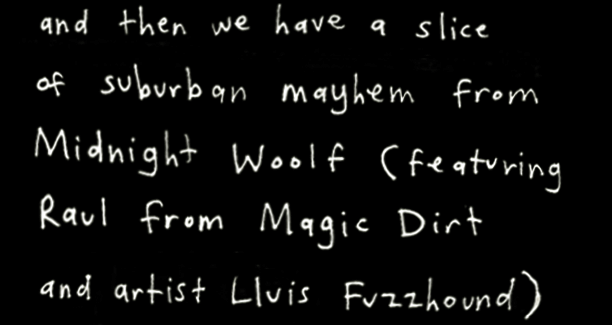 and then we have a slice
of suburban mayhem from
Midnight Woolf (featuring
Raul from Magic Dirt
and artist Lluis Fuzzhound)